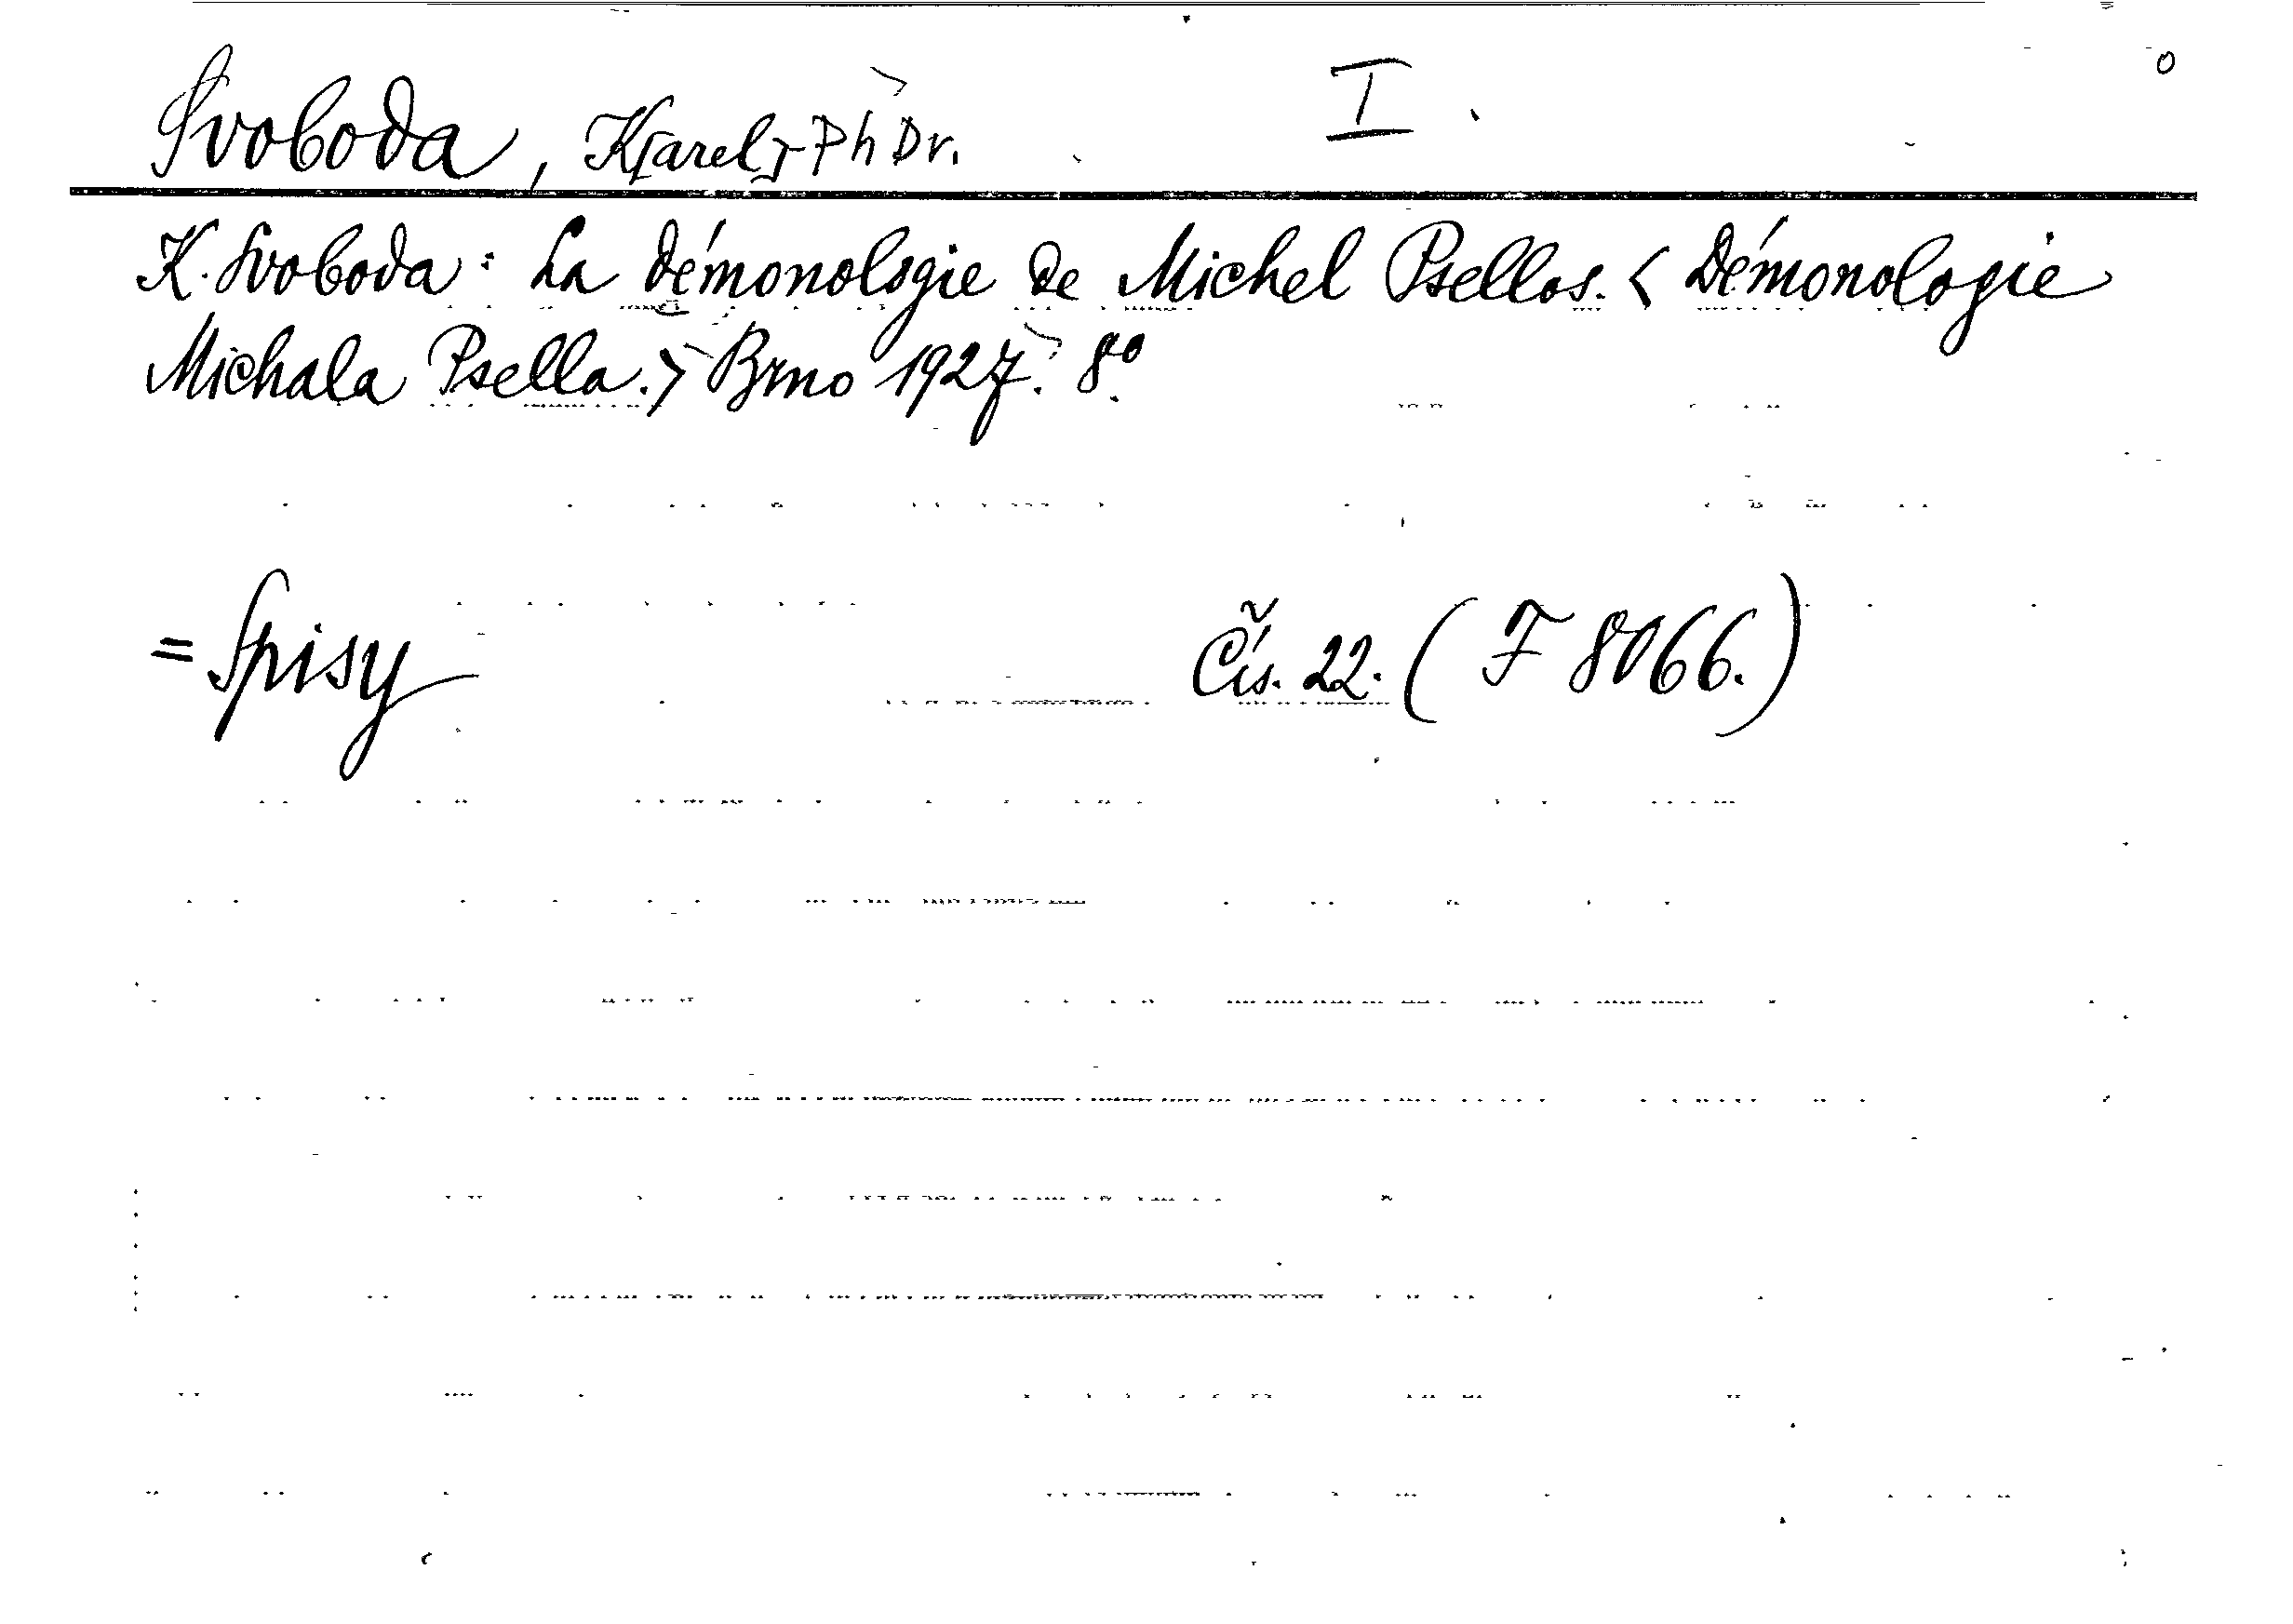 Svoboda, K[arel] PhDr. I.
K. Svoboda: La démonologie de Michel Psellos. < Démonologie
Michala Psella. > Brno 1927. 8°.
= Spisy Čís. 22. ( F 8066.)